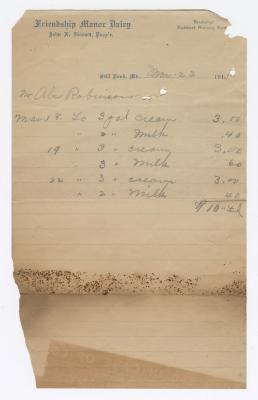 Friendship Manor Dairy
John N. Bennett, Prop'r.
Still Pond, Md. Mar 23 191
Mr Abe Robinson
Mar 18 To 3 gal cream 3.00
" 2 " Milk .40
19 " 3 " cream 3.00
" 3 " Milk 60
22 " 3 " cream 3.00
" 2 " Milk 40
$10.40